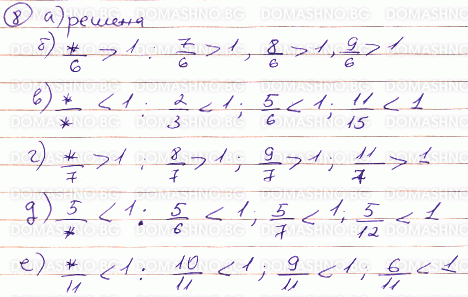 8 а) решена
б) */6 > 1 : 7/6 > 1, 8/6 > 1, 9/6 > 1
в) */* < 1 : 2/3 < 1; 5/6 < 1; 11/15 < 1
г) */7 > 1 : 8/7 > 1; 9/7 > 1; 11/7 > 1
д) 5/* < 1 : 5/6 < 1; 5/7 < 1; 5/12 < 1
е) */11 < 1 : 10/11 < 1; 9/11 < 1; 6/11 < 1